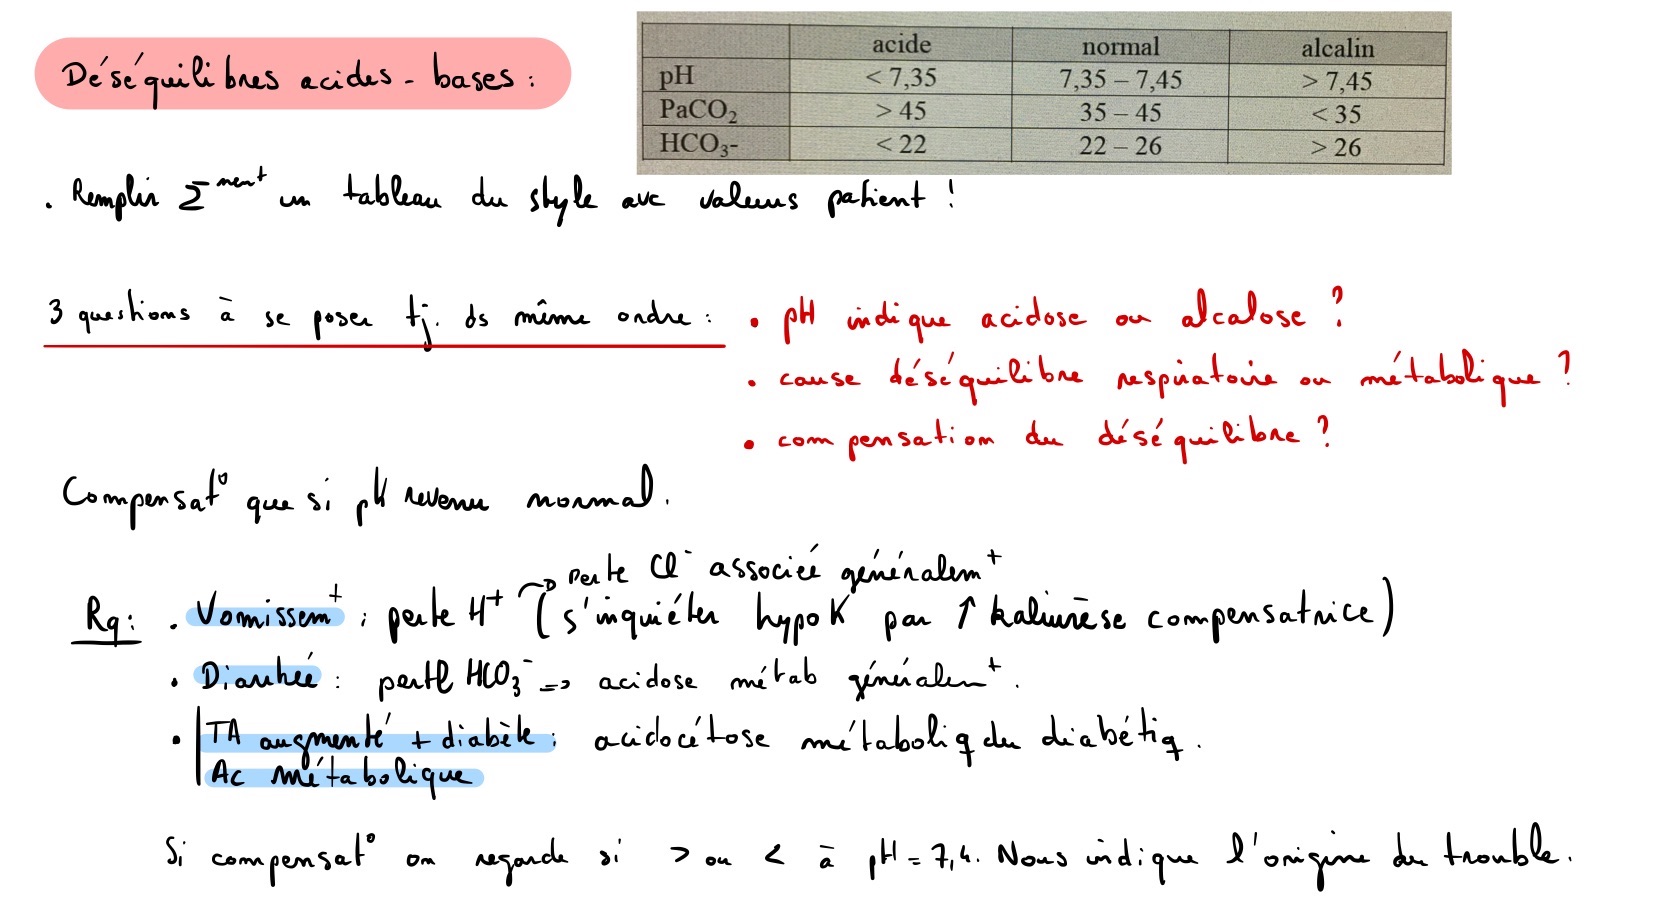 Déséquilibres acides - bases :
acide normal alcalin
pH < 7,35 7,35 – 7,45 > 7,45
PaCO2 > 45 35 – 45 < 35
HCO3- < 22 22 – 26 > 26
. Remplir Σment un tableau du style avc valeurs patient !
3 questions à se poser tj. ds même ordre :
• pH indique acidose ou alcalose ?
• cause déséquilibre respiratoire ou métabolique ?
• compensation du déséquilibre ?
Compensat° que si pH revenu normal.
perte Cl- associée généralem+
Rq : . Vomissem+ : perte H+ (s'inquiéter hypoK par ↑ kaliurèse compensatrice)
. Diarrhée : perte HCO3- => acidose métab généralem+.
• TA augmenté + diabète : acidocétose métaboliq du diabétiq.
Ac métabolique
Si compensat° on regarde si > ou < à pH = 7,4. Nous indique l'origine du trouble.